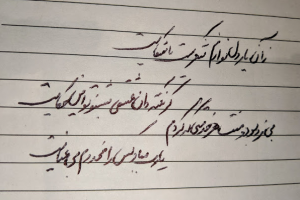 زان یار دلنوازم شکریست با شکایت
گر نکته دان عشقی بشنو تو این حکایت
بی مزد بود و منت هر خدمتی که کردم
یارب مباد کس را مخدوم بی عنایت